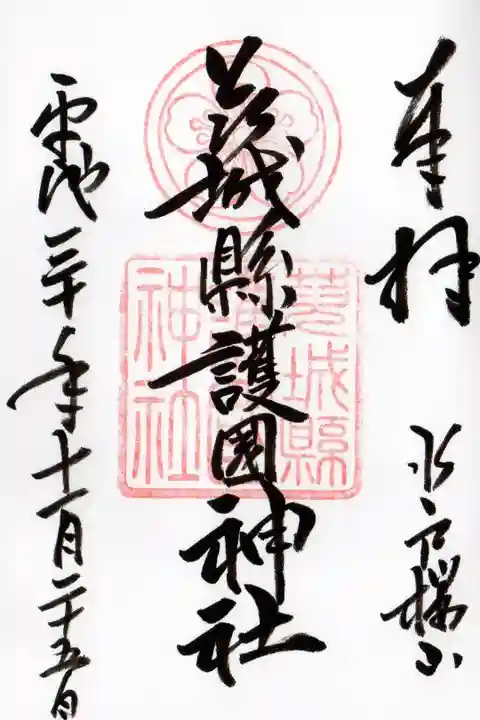 奉拝
水戸桜山
茨城縣護國神社
平成三十年十一月二十五日
茨城縣
護國
神社